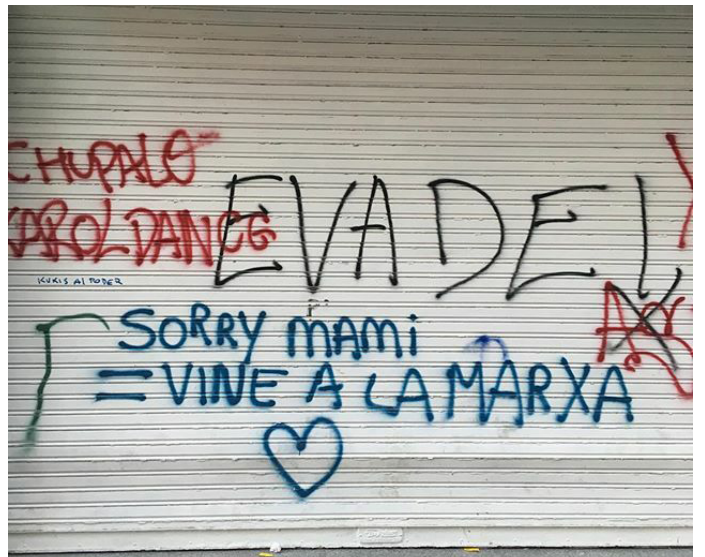 CHUPALO
KAROLDANCE
EVADE
KUKIS AL PODER
SORRY MAMi
=VINE A LA MARXA